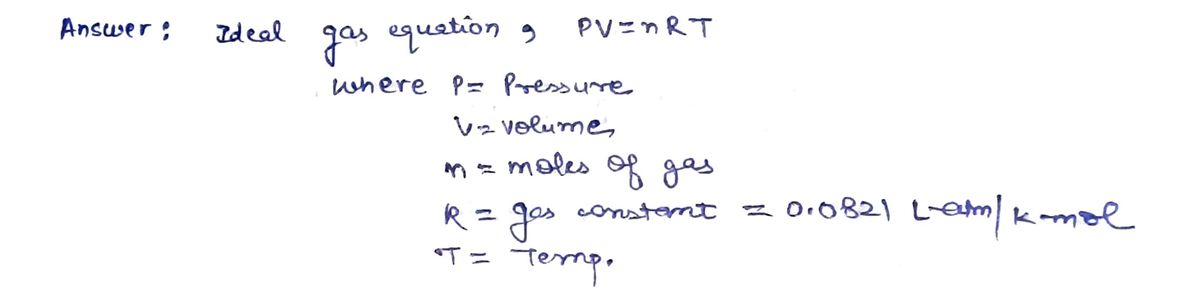 Answer: Ideal gas equation, PV=nRT
where P= Pressure
V= volume,
n = moles of gas
R = gas constant = 0.0821 L-atm/K-mol
T = Temp.